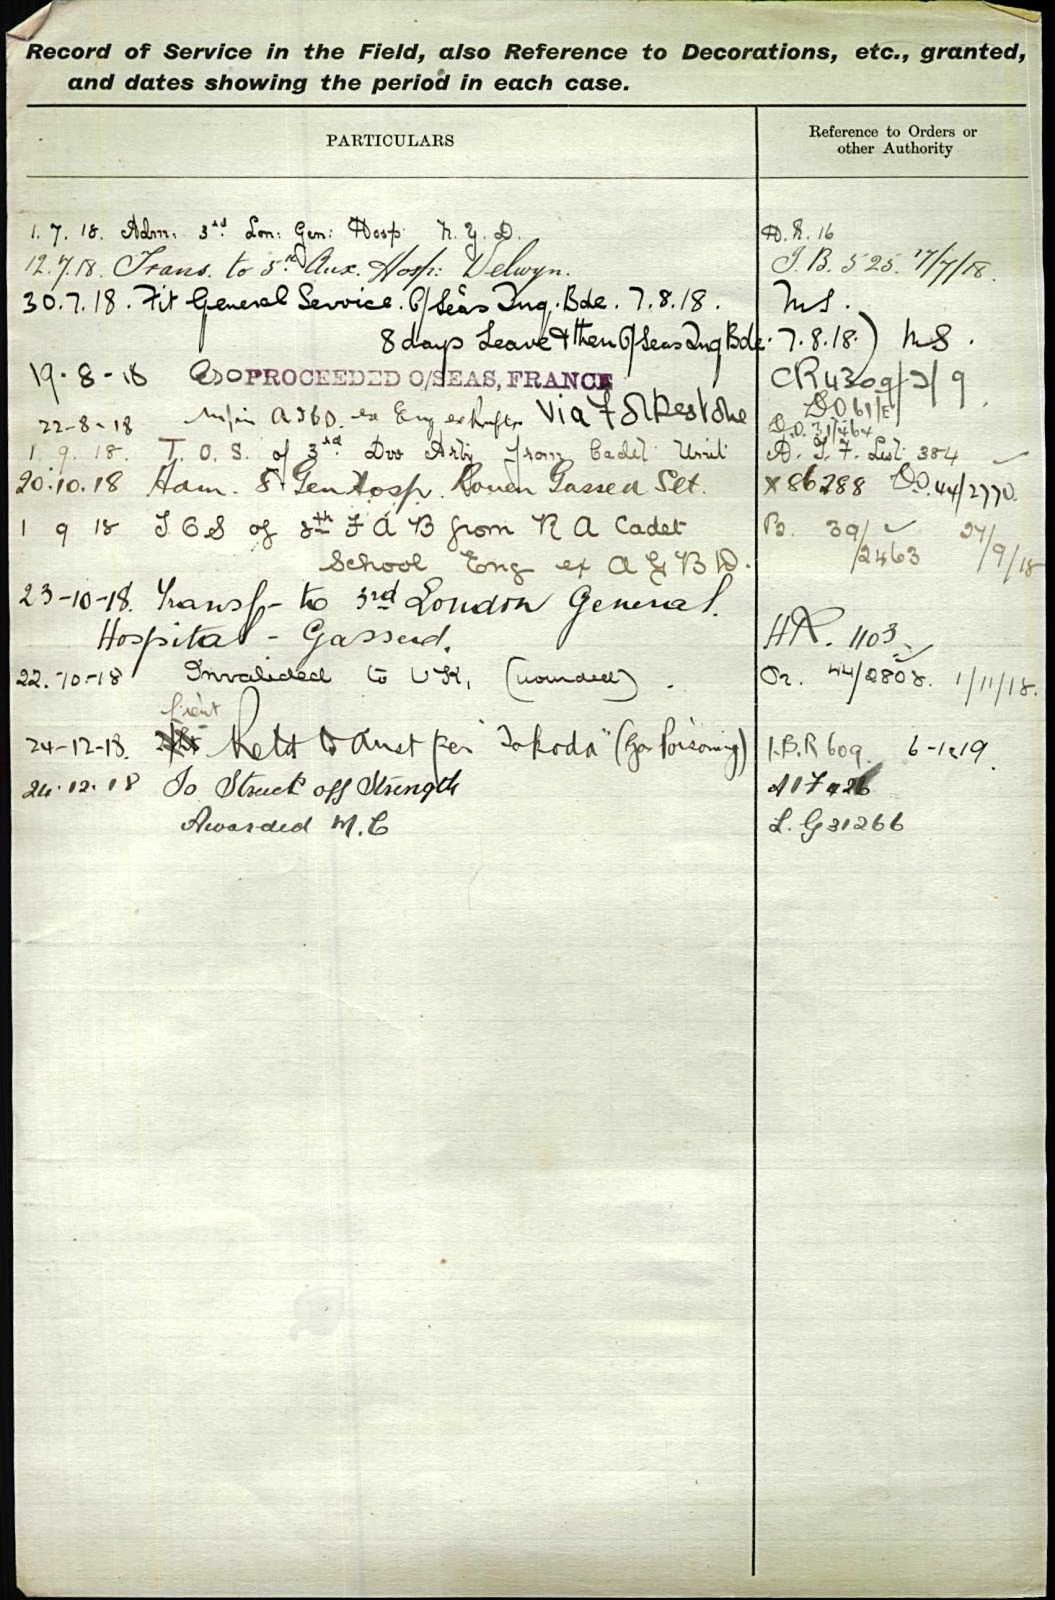 Record of Service in the Field, also Reference to Decorations, etc., granted,
and dates showing the period in each case.
PARTICULARS
Reference to Orders or
other Authority
1.7.18. Adm: 3rd Lon: Gen: Hosp N.Y.D. H.R. 16
12.7.18. Trans. to 5th Aux. Hosp: Welwyn. I.B. 525. 17/7/18.
30.7.18. Fit General Service. O/Seas Trng. Bde. 7.8.18. MS.
8 days Leave & then O/Seas Trng Bde. 7.8.18.) MS.
19-8-18 PROCEEDED O/SEAS, FRANCE CR4309/2/9
via Folkestone D.O 61/E
22-8-18 M/in A.G.B.D. ex Eng ex D.O. 31/464
1.9.18. T.O.S. of 3rd Div Arty from Cadet Unit A.I.F. List 384
20.10.18 Adm. 8 Gen Hosp. Rouen Gassed Slt. X86288 D.O. 44/2770
1 9 18 T O S of 8th F A B from R A Cadet B. 39/2463 27/9/18
School Eng ex A G B D.
23-10-18. Transf- to 3rd London General
Hospital - Gassed. HR. 1103
22.-10-18 Invalided to UK, (wounded). 44/2808. 1/11/18.
Lieut
24-12-18. Retd to Aust per "Takada" (Gas Poisoning) I.B.R 609. 6-1-19.
24.12.18 To Struck off Strength
Awarded M.C L.G 31266